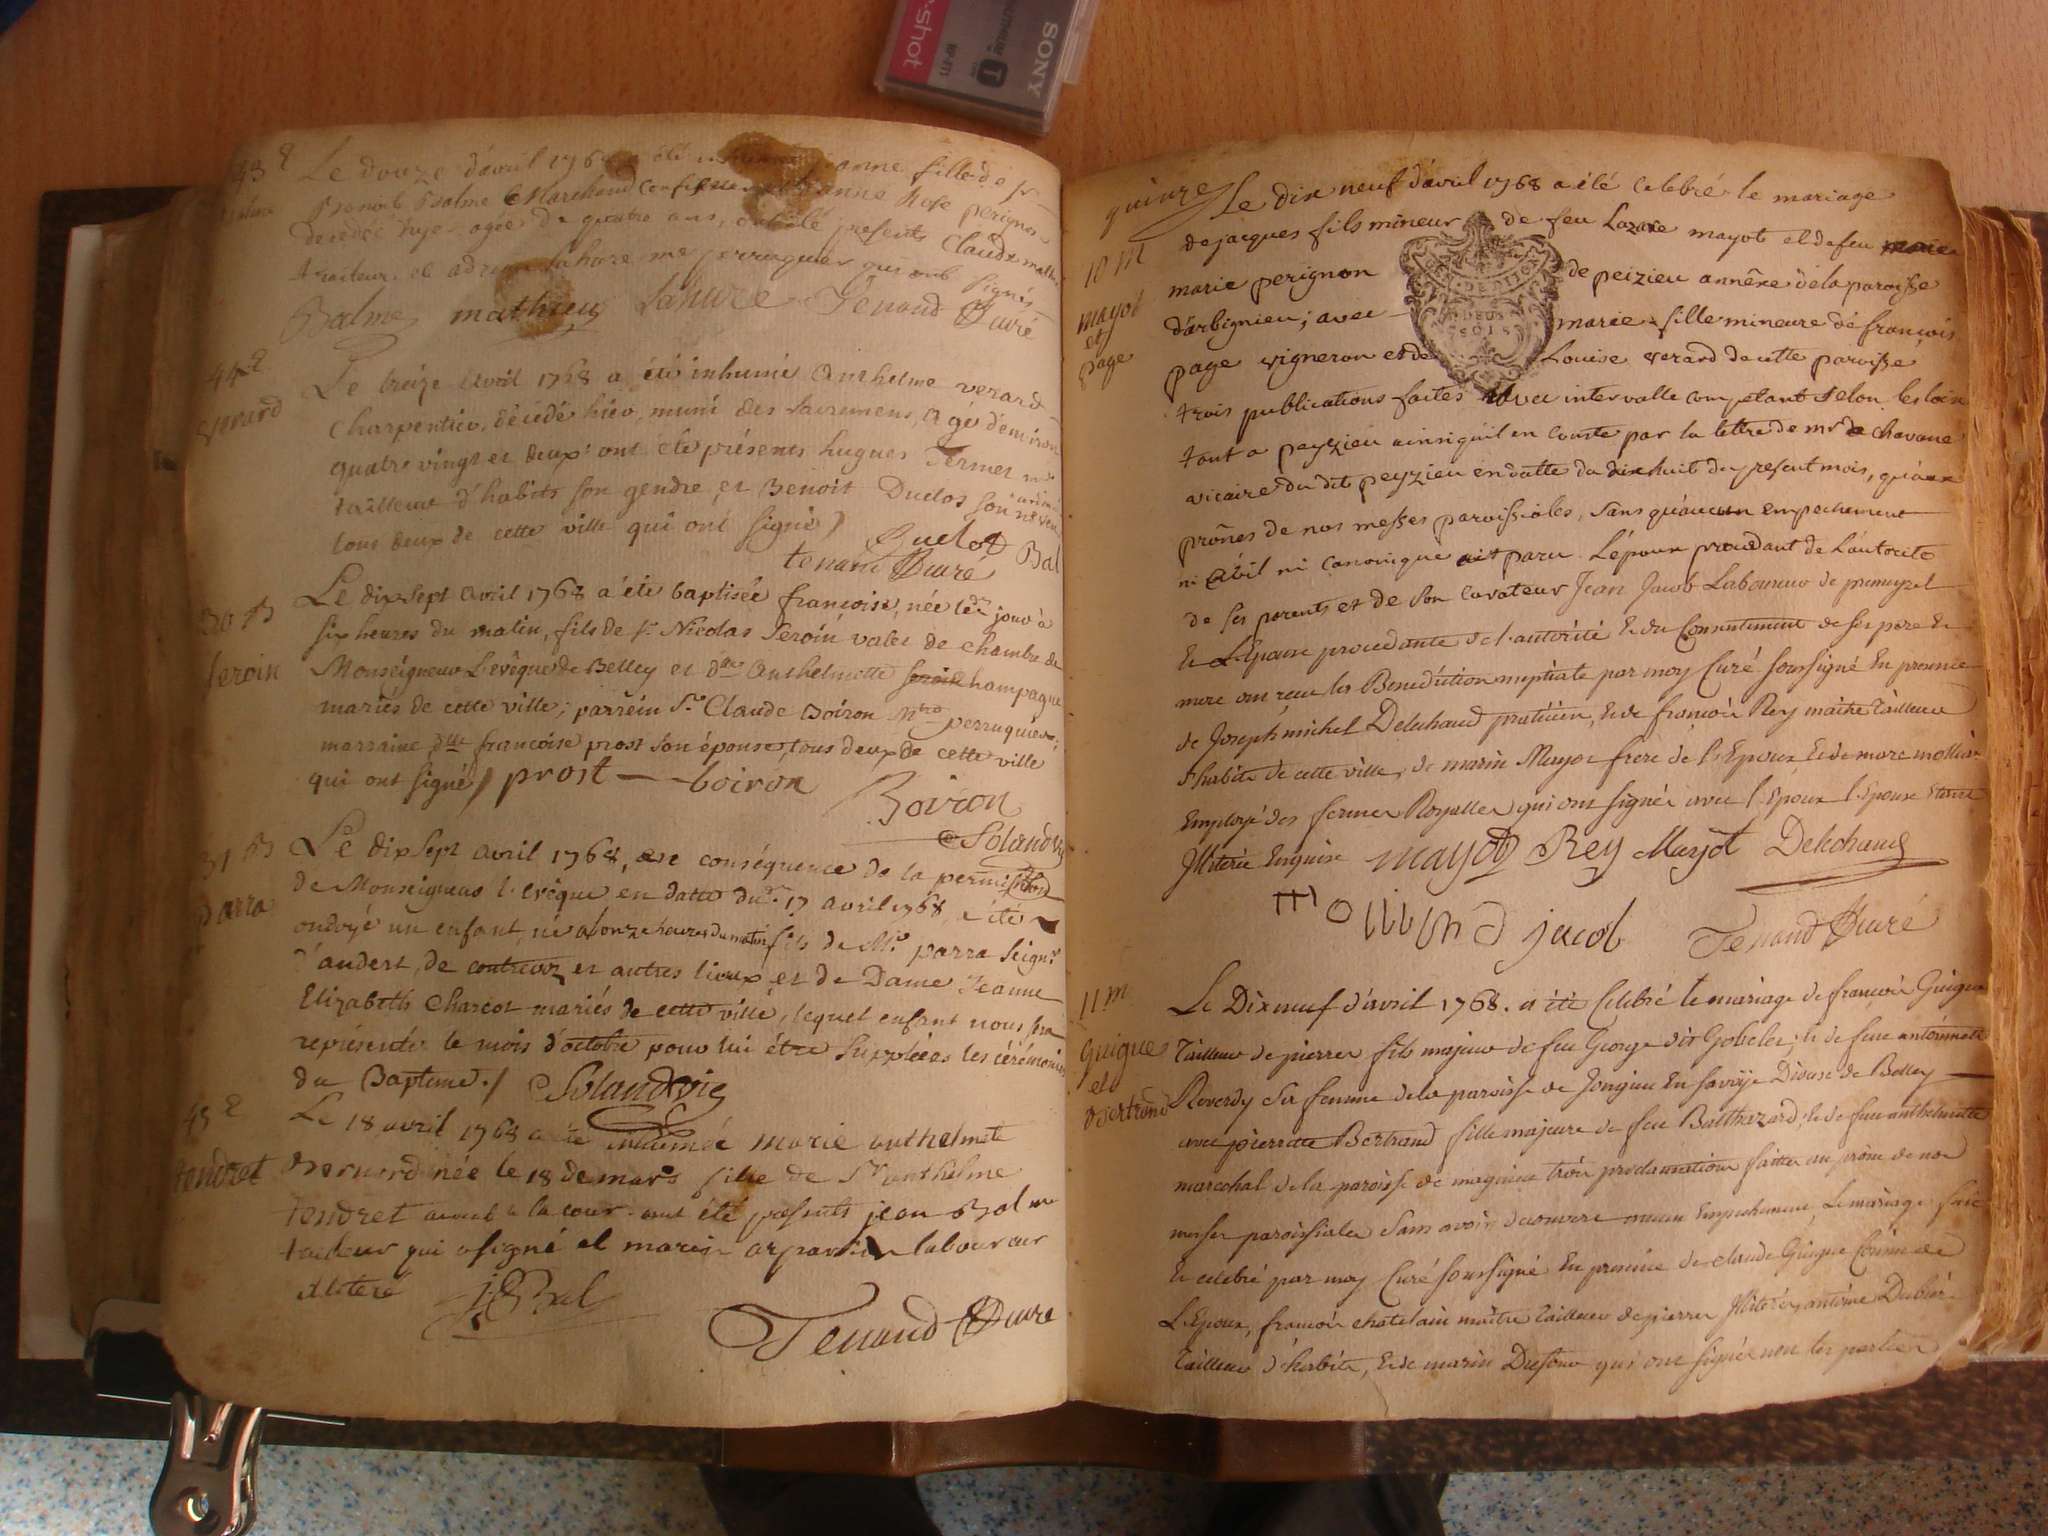 SONY
T
-shot
43 E
Le douze davril 1768 a été anne fille de Sr
Benoit Balme Marchand et anne Rose perignon
decedée hyer agée de quatre ans, ont été presents Claude mathieu
traiteur et adrien Lahure me perruquier qui ont signés
Balme mathieu Lahure Tenand Curé
44 E
verard
Le treize avril 1768 a été inhumé anthelme verard
charpentier, décédé hier, muni des sacremens, agé d'environ
quatre vingt et deux ans ont été présents hugues Fermet me
tailleur d'habits son gendre, et Benoit Duclos son neveu
tous deux de cette ville qui ont signé
Duclos Bal
tenand Curé
30 B
Seroin
Le dix sept avril 1768 a été baptisée francoise, née le dt jour à
six heures du matin, fils de Sr Nicolas Seroin valet de chambre de
Monseigneur L'evêque de Belley et dlle anthelmette champagne
mariés de cette ville; parrein Sr Claude Boiron Mtre perruquier,
marraine dlle francoise prost son épouse, tous deux de cette ville
qui ont signé / prost boiron
Boiron
Solandvig
31 B
parra
Le dix sept avril 1768, en conséquence de la permission
de Monseigneur l'evêque en datte du dt 17 avril 1768, a été
ondoyé un enfant, né a onze heures du matin fils de Mr parra Seignr
d'andert, de contrevoz et autres lieux, et de Dame Jeanne
Elizabeth Charcot mariés de cette ville, lequel enfant nous sera
représenté le mois d'octobre pour lui être suppléées les cérémonies
du Baptême. / Solandvig
45 E
tendret
Le 18 avril 1768 a été inhumée marie anthelmete
Bernard née le 18 de mars fille de Sr anthelme
tendret avocat a la cour ont été présents jean Bal me
tailleur qui a signé et marin laboureur
illiteré J Bal
Tenand Curé
quinze
10 M
mayot
et
page
Le dix neuf davril 1768 a été celebré le mariage
de jacques fils mineur de feu Lazare mayot et de feu
marie perignon de peizieu annêxe de la paroisse
d'arbignieu; avec marie fille mineure de françois
page vigneron et de Louise verard de cette paroisse
trois publications faites avec intervalle competant selon les loix
tant a peyzieu ainsi qu'il en conste par la lettre de mr de chavane
vicaire du dit peyzieu en datte du dix huit du present mois, qu'aux
prônes de nos messes paroissiales, sans qu'aucun empechement
ni civil ni canonique ait paru. L'époux procedant de L'autorité
de ses parents et de son curateur Jean Jacob Laboureur de premeyzel
et L'Epouse procedante de l'autorité et du Consentement de ses pere et
mere ont reçu les Benediction nuptiale par moy Curé soussigné En presence
de Joseph michel Delechaud praticien, et de francois Rey maitre Tailleur
d'habits de cette ville, de marin Mayot frere de l'Epoux et de marc mollier
Employé des fermes Royalles qui ont signés avec l'Epoux l'Epouse
Illiterée Enquise mayot Rey Mayot Delechaud
jacob Tenand Curé
11 m
Guigue
et
Bertrand
Le Dix neuf d'avril 1768. a été Celebré le mariage de francois Guigue
Tailleur de pierres fils majeur de feu George dit Gobelet, et de feue antoinnette
Reverdy sa femme de la paroisse de Jongieu En savoÿe Diocese de Belley
avec pierrette Bertrand fille majeure de feu Balthazard, et de feue anthelmette
marechal de la paroisse de magnieu trois proclamations faittes au prône de nos
messes paroissiales sans avoir decouvert aucun Empechement Le mariage fait
et celebré par moy Curé soussigné En presence de claude Guigue Cousin de
L'Epoux, francois chatelain maître Tailleur de pierres Illiterés, antoine Dublé
Tailleur d'habits, et de marin Dufour qui ont signés non les parties